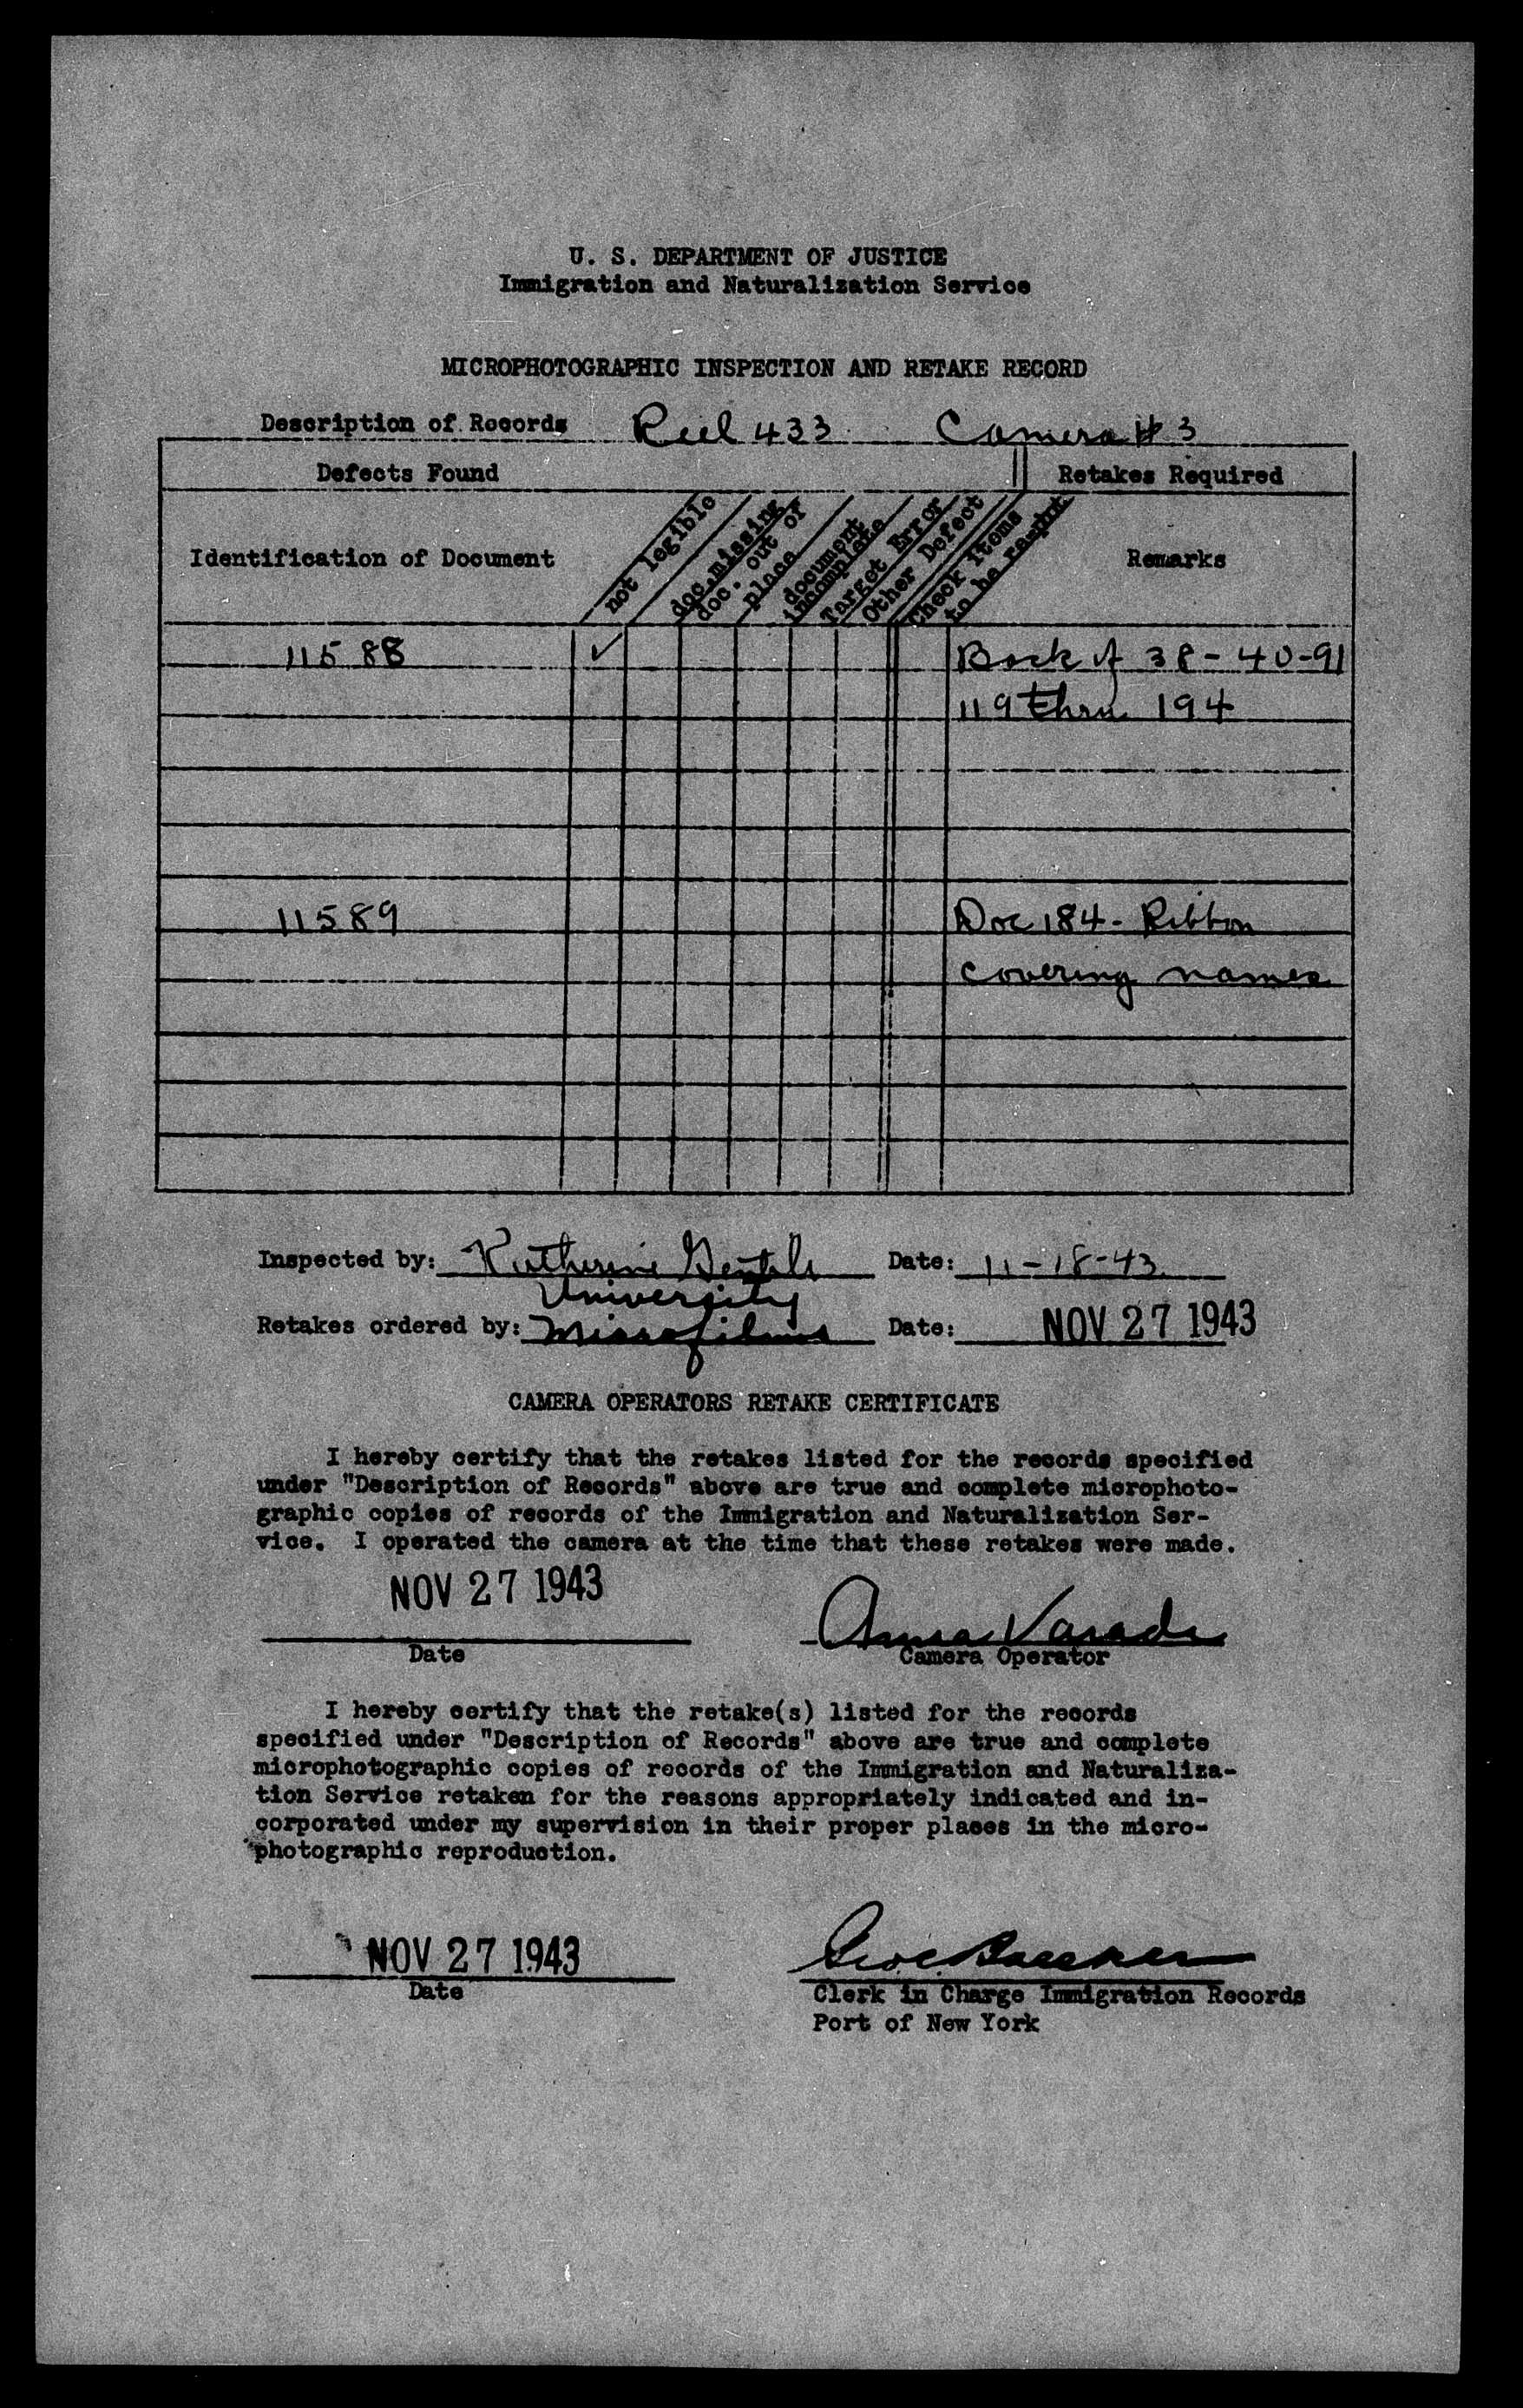 U. S. DEPARTMENT OF JUSTICE
Immigration and Naturalization Service
MICROPHOTOGRAPHIC INSPECTION AND RETAKE RECORD
Description of Records Reel 433 Camera # 3
Defects Found Retakes Required
Identification of Document
not legible
doc. missing
doc. out of place
document incomplete
Target Error
Other Defect
Check Items to be
Remarks
11588 ✓ Back of 38-40-91
119 thru 194
11589 Doc 184- Ribbon
covering names
Inspected by: Katherine Date: 11-18-43
University
Retakes ordered by: Microfilms Date: NOV 27 1943
CAMERA OPERATORS RETAKE CERTIFICATE
I hereby certify that the retakes listed for the records specified
under "Description of Records" above are true and complete microphoto-
graphic copies of records of the Immigration and Naturalization Ser-
vice. I operated the camera at the time that these retakes were made.
NOV 27 1943
Anna Varadi
Date Camera Operator
I hereby certify that the retake(s) listed for the records
specified under "Description of Records" above are true and complete
microphotographic copies of records of the Immigration and Naturaliza-
tion Service retaken for the reasons appropriately indicated and in-
corporated under my supervision in their proper places in the micro-
photographic reproduction.
NOV 27 1943
Date
Clerk in Charge Immigration Records
Port of New York